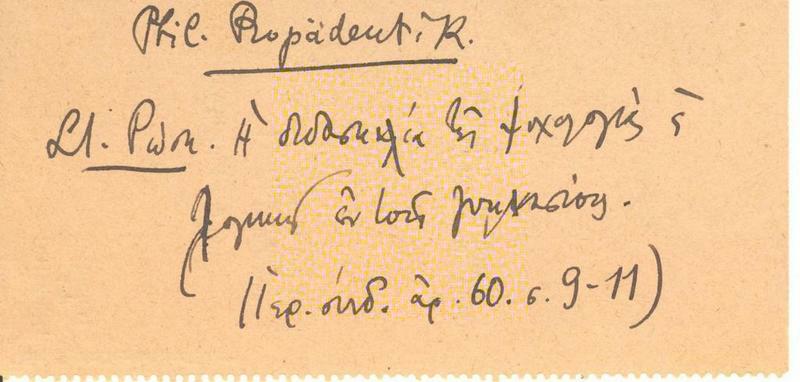 Phil. Propädeutik.
Στ. Ρώση. Ἡ διδασκαλία τῆς ψυχολογίας ἢ
λογικῆς ἐν τοῖς γυμνασίοις.
(Ἱερ. σύνδ. ἀρ. 60. σ. 9-11)